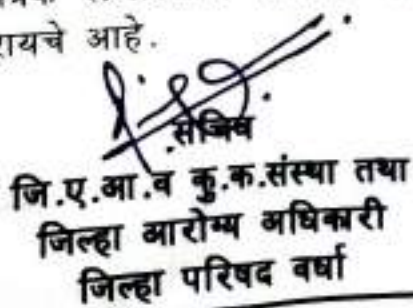 रायचे आहे.
सचिव
जि.ए.आ.व कु.क.संस्था तथा
जिल्हा आरोग्य अधिकारी
जिल्हा परिषद वर्धा